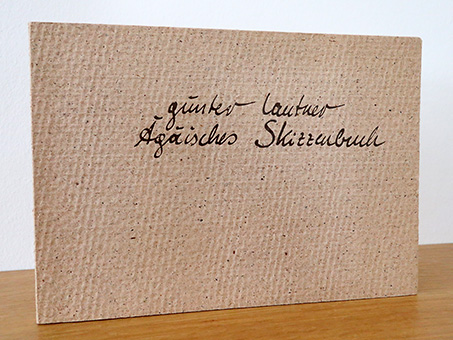 günter lautner
Ägäisches Skizzenbuch